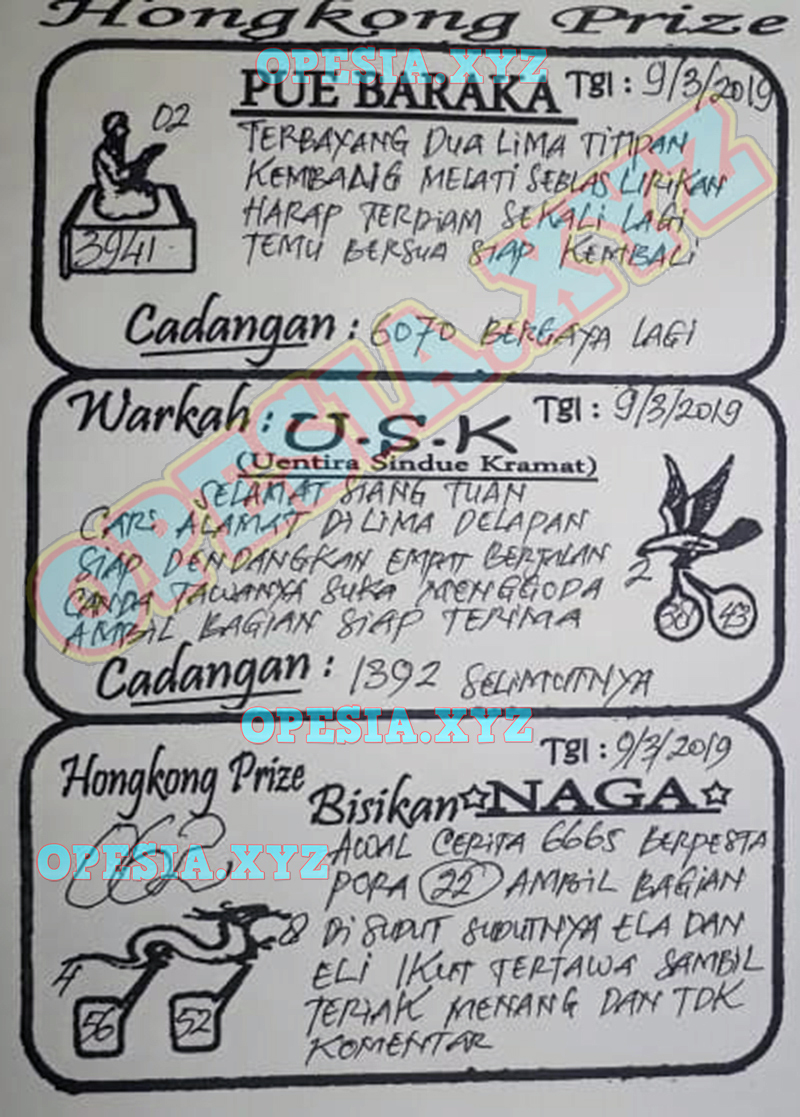 Hongkong Prize
OPESIA.XYZ
PUE BARAKA
Tgl : 9/3/2019
02
3941
TERBAYANG DUA LIMA TITIPAN
KEMBANG MELATI SEBLAS LIRIKAN
HARAP TERDIAM SEKALI LAGI
TEMU BERSUA SIAP KEMBALI
Cadangan : 6070 BERGAYA LAGI
OPESIA.XYZ
Warkah : U-S-K
Tgl : 9/3/2019
(Uentira Sindue Kramat)
SELAMAT SIANG TUAN
CARI ALAMAT DI LIMA DELAPAN
SIAP DENDANGKAN EMPAT BERJALAN
CANDA TAWANYA SUKA MENGGODA
AMBIL BAGIAN SIAP TERIMA
2
43
Cadangan : 1392 SELIMUTNYA
OPESIA.XYZ
Tgl : 9/3/2019
Hongkong Prize
Bisikan NAGA
OPESIA.XYZ
AWAL CERITA 6665 BERPESTA
PORA 22 AMBIL BAGIAN
DI SUDUT SUDUTNYA ELA DAN
ELI IKUT TERTAWA SAMBIL
TERIAK MENANG DAN TDK
KOMENTAR
8
4
56 52